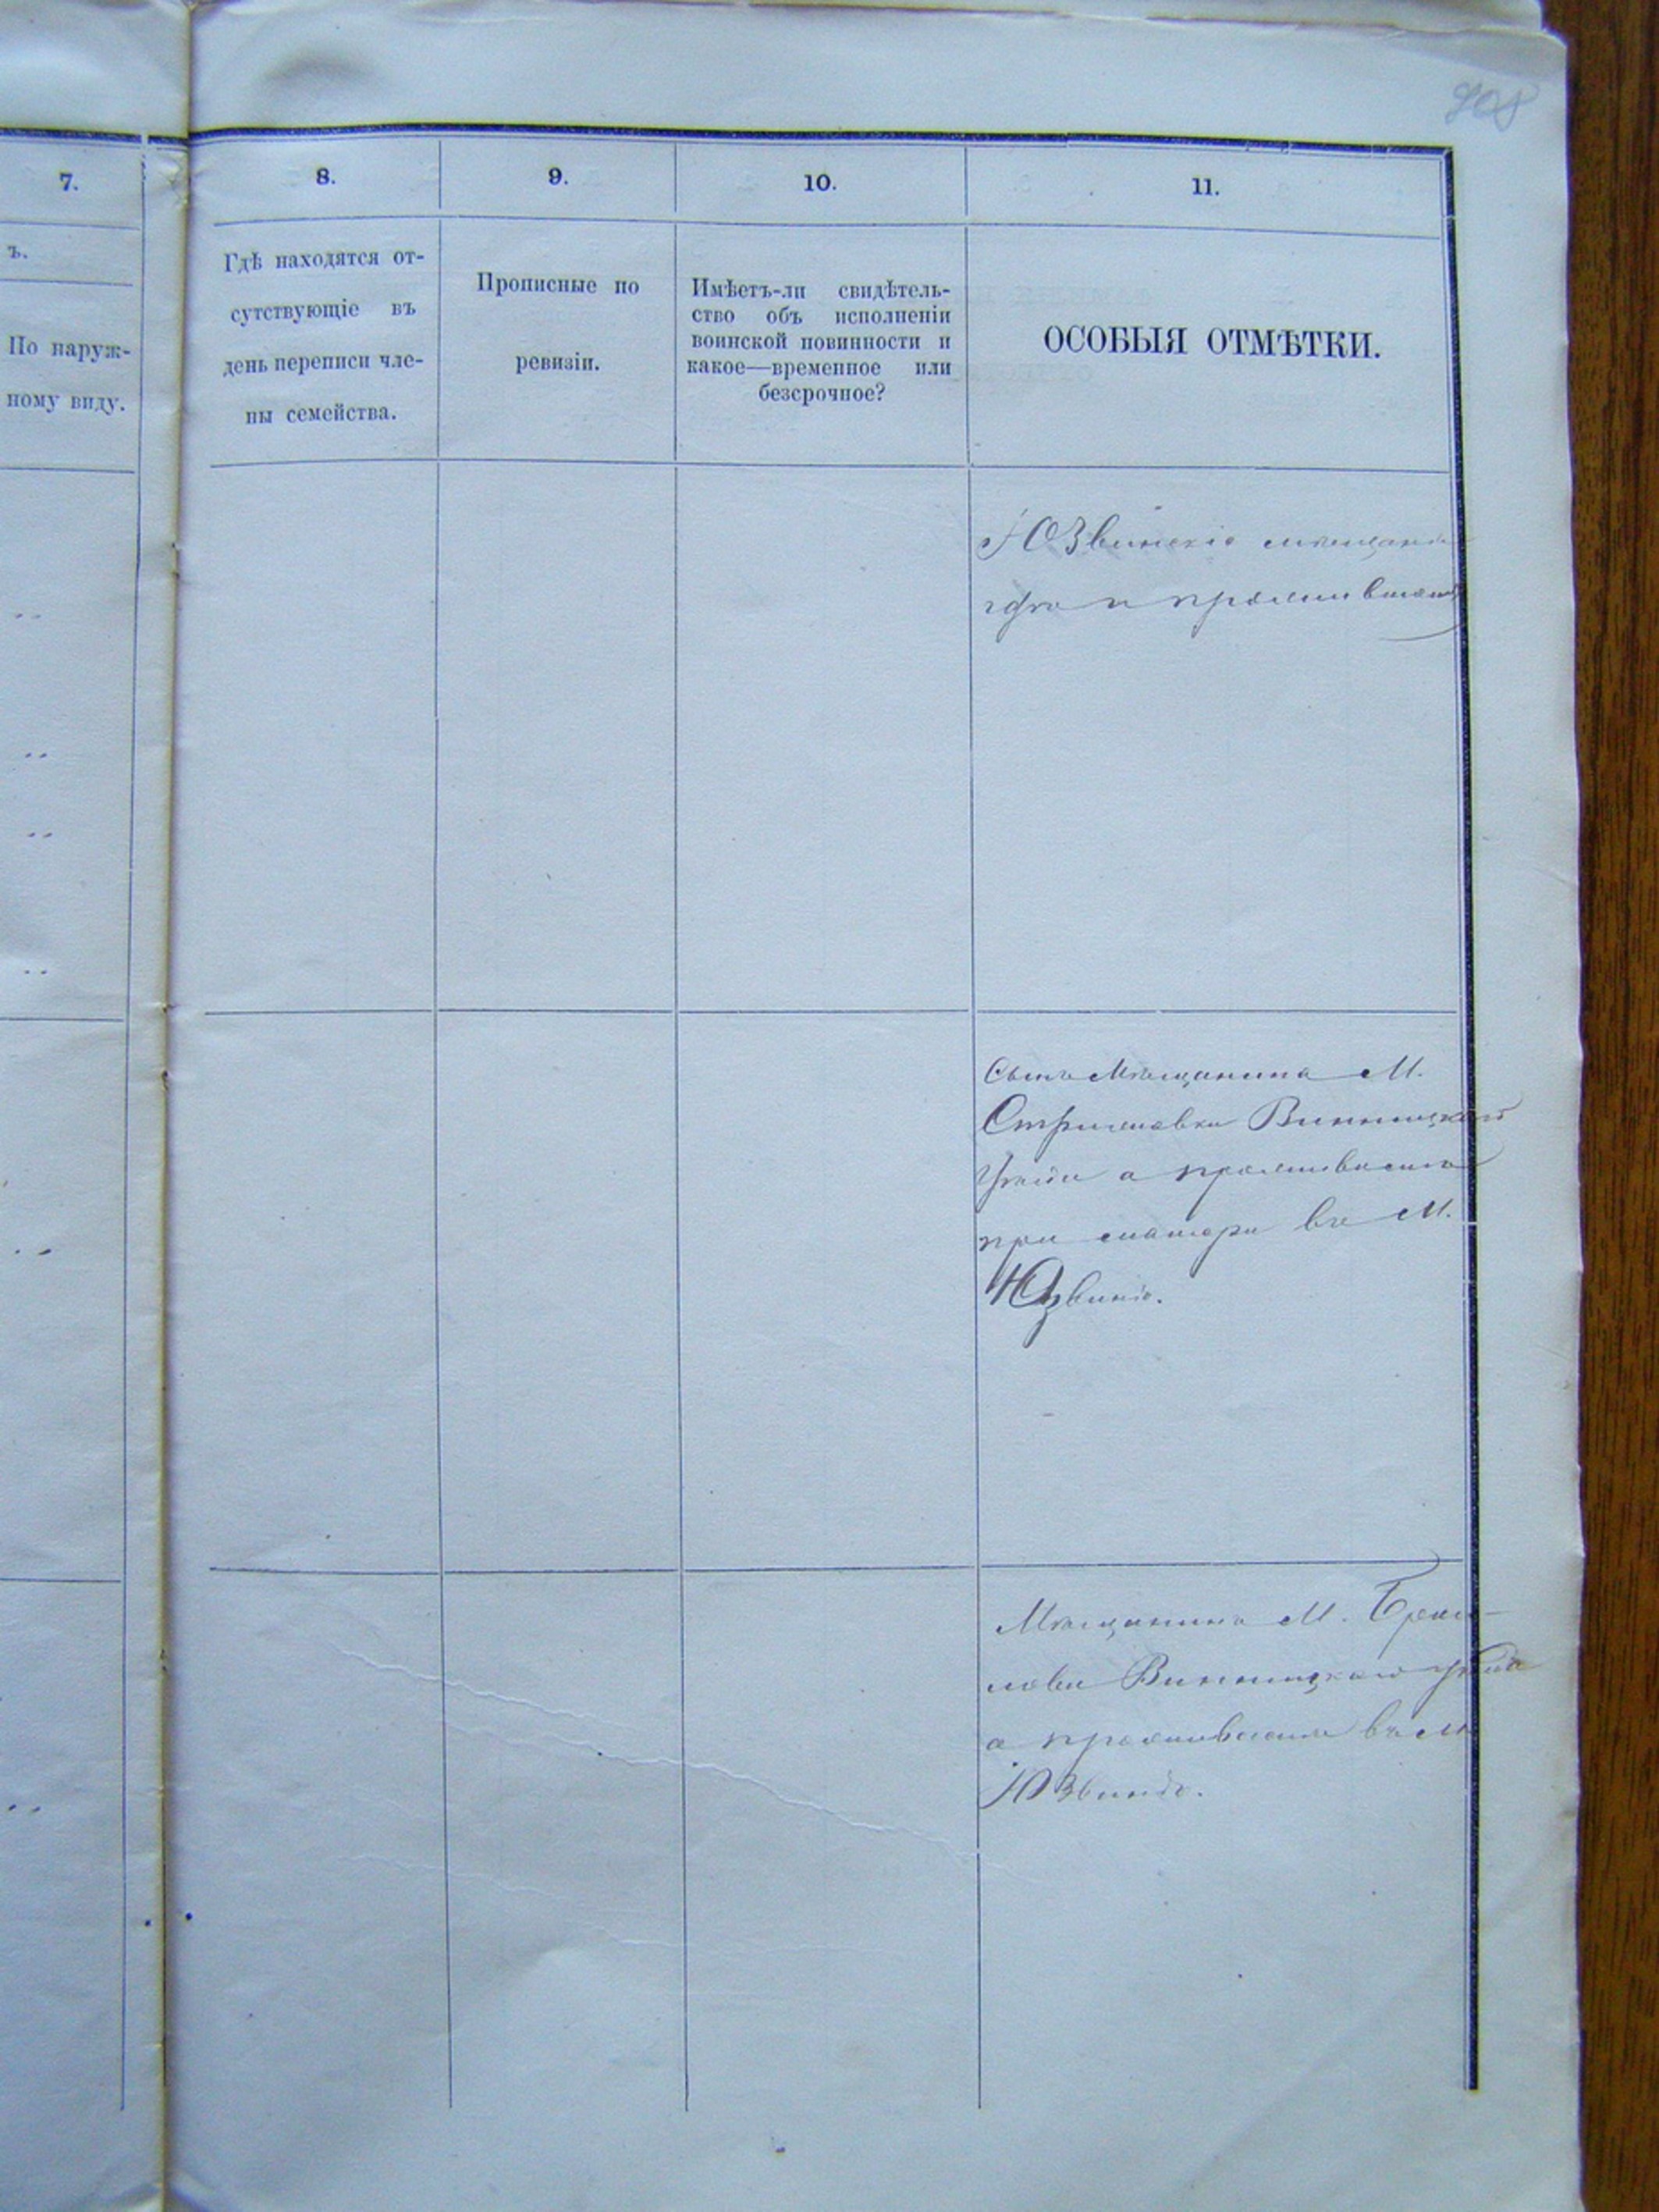 908
7.
8.
9.
10.
11.
ъ.
По наруж-
ному виду.
Гдѣ находятся от-
сутствующіе въ
день переписи чле-
ны семейства.
Прописные по
ревизіи.
Имѣетъ-ли свидѣтель-
ство объ исполненіи
воинской повинности и
какое—временное или
безсрочное?
ОСОБЫЯ ОТМѢТКИ.
Юзвинскіе мѣщане
гдѣ и проживаютъ
Сынъ Мѣщанина М.
Стрижавки Винницкаго
Уѣзда а проживаетъ
при матери въ М.
Юзвинѣ.
Мѣщанинъ М. Браи-
лова Винницкаго уѣзда
а проживаетъ въ М
Юзвинѣ.